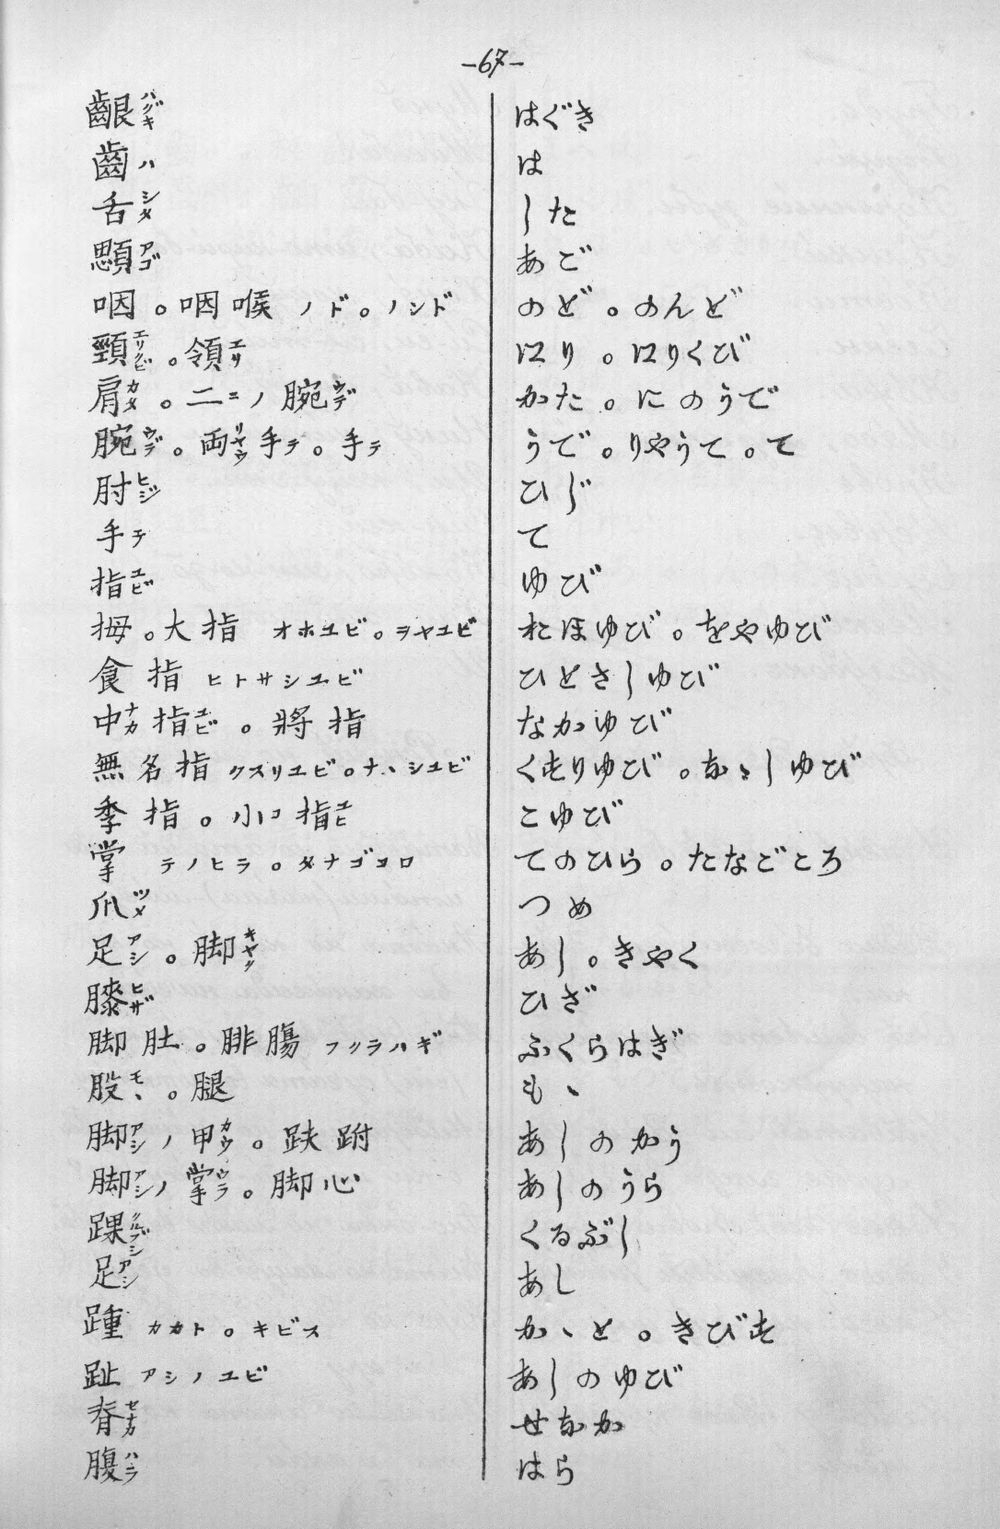 -67-
齦ハグキ はぐき
齒ハ は
舌シタ した
顋アゴ あご
咽。咽喉 ノド。ノンド のど。のんど
頸エリクビ。領エリ ゑり。ゑりくび
肩カタ。二ニノ腕ウデ かた。にのうで
腕ウデ。両リヤウ手テ。手テ うで。りやうて。て
肘ヒジ ひじ
手テ て
指ユビ ゆび
拇。大指 オホユビ。ヲヤユビ おほゆび。をやゆび
食指 ヒトサシユビ ひとさしゆび
中ナカ指ユビ。將指 なかゆび
無名指 クスリユビ。ナヽシユビ くすりゆび。なゝしゆび
季指。小コ指ユビ こゆび
掌 テノヒラ。タナゴコロ てのひら。たなごころ
爪ツメ つめ
足アシ。脚キヤク あし。きやく
膝ヒザ ひざ
脚肚。腓腸 フクラハギ ふくらはぎ
股モヽ。腿 もゝ
脚アシノ甲カウ。趺跗 あしのかう
脚アシノ掌ウラ。脚心 あしのうら
踝クルブシ くるぶし
足アシ あし
踵 カカト。キビス かゝと。きびす
趾 アシノユビ あしのゆび
脊セナカ せなか
腹ハラ はら